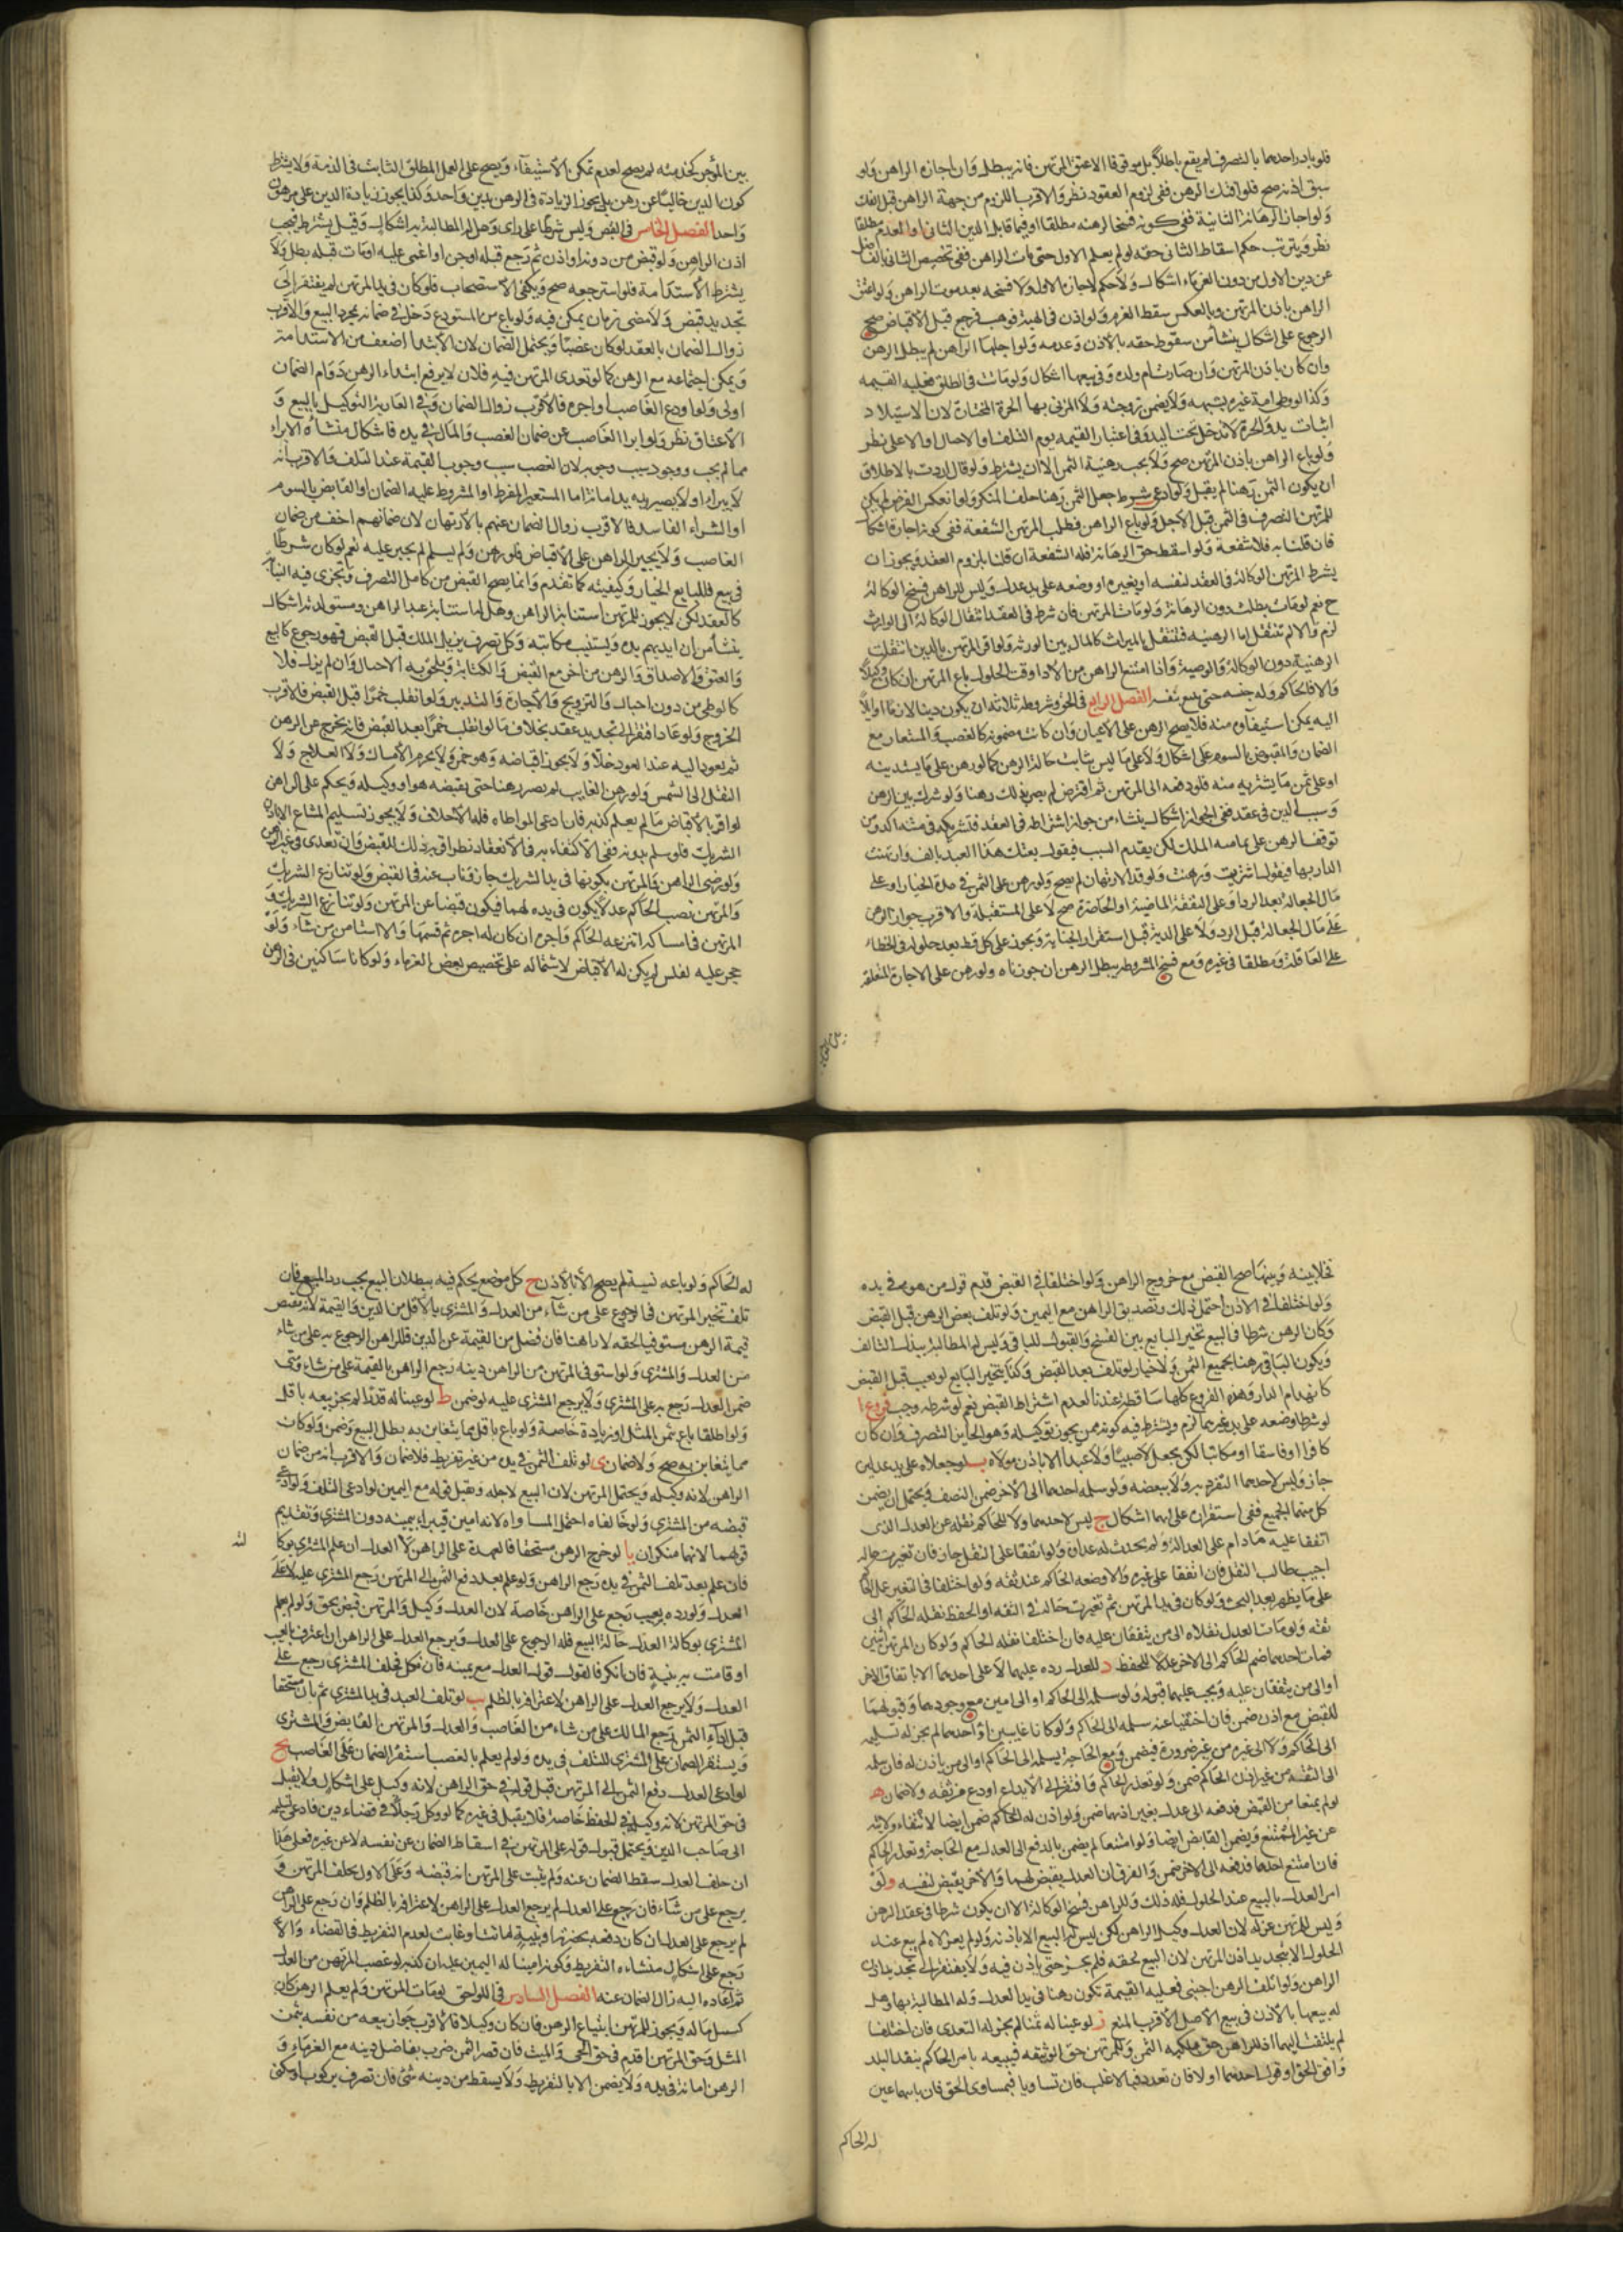 فلو بادر احدهما بالتصرف لم يقع باطلا بل موقوفا الا عتق المرتهن فانه يبطل وان اجازه الراهن ولو
سبق اذنه صح فلو افتك الرهن ففي لزوم العقود نظر والاقرب اللزوم من جهة الراهن قبل الفك
ولو اجاز الرهانة الثانية ففي كونه فسخا لرهنه مطلقا او فيما قابل الدين الثاني او العدم مطلقا
نظر ويترتب حكم اسقاط الثاني حقه لو لم يعلم الاول حتى مات الراهن ففي تخصيص الثاني بالفاضل
عن دين الاول من دون الغرماء اشكال ولا حكم لاجازة الاول ولا فسخه بعد موت الراهن ولو اعتق
الراهن باذن المرتهن وبالعكس سقط الغرم ولو اذن في الهبة فوهب فرجع قبل الاقباض صح
الرجوع على اشكال ينشأ من سقوط حقه بالاذن وعدمه ولو احبلها الراهن لم يبطل الرهن
وان كان باذن المرتهن وان صارت ام ولده وفي بيعها اشكال ولو ماتت في الطلق فعليه القيمه
وكذا لو وطي امة غيره بشبهه ولا يضمن زوجته ولا المزني بها الحرة المختارة لان الاستيلاد
اثبات يد والحرة لا تدخل تحت اليد وفي اعتبار القيمه يوم التلف او الاحبال او الاعلى نظر
ولو باع الراهن باذن المرتهن صح ولا يجب رهنية الثمن الا ان يشترط ولو قال اردت بالاطلاق
ان يكون الثمن رهنا لم يقبل ولو ادعى شرط جعل الثمن رهنا حلف المنكر ولو انعكس الفرض لم يكن
للمرتهن التصرف في الثمن قبل الاجل ولو باع الراهن فطلب المرتهن الشفعة ففي كونه اجازة اشكال
فان قلنا به فلا شفعة ولو اسقط حق الرهانة فله الشفعة ان قلنا بلزوم العقد ويجوز ان
يشرط المرتهن الوكالة في العقد لنفسه او لغيره او وضعه على يد عدل وليس للراهن فسخ الوكالة
ح نعم لو مات بطلت دون الرهانة ولو مات المرتهن فان شرط في العقد انتقال الوكالة الى الوارث
لزم والا لم تنتقل اما الرهنية فتنتقل بالميراث كالمال بين الورثه ولو اقر المرتهن بالدين انتقلت
الرهنية دون الوكالة والوصية واذا امتنع الراهن من الاداء وقت الحلول باع المرتهن ان كان وكيلا
والا فالحاكم وله حبسه حتى يبيع بنفسه الفصل الرابع في الحق وشروطه ثلاثة ان يكون دينا لازما او ايلا
اليه يمكن استيفاوه منه فلا يصح الرهن على الاعيان وان كانت مضمونه كالغصب والمستعار مع
الضمان والمقبوض بالسوم على اشكال ولا على ما ليس بثابت حالة الرهن كما لو رهن على ما يستدينه
او على ثمن ما يشتريه منه فلو دفعه الى المرتهن ثم اقترض لم يصر بذلك رهنا ولو شرك بين الرهن
وسبب الدين في عقد ففي الجواز اشكال ينشاء من جواز اشتراطه في العقد فتشريكه في متنه اكد ومن
توقف الرهن على تماميه الملك لكن يقدم السبب فيقول بعتك هذا العبد بالف وارتهنت
الدار بها فيقول اشتريت ورهنت ولو قدم الارتهان لم يصح ولو رهن على الثمن في مدة الخيار او على
مال الجعالة بعد الرد او على النفقة الماضية او الحاضرة صح لا على المستقبلة والاقرب جواز الرهن
على مال الجعالة قبل الرد ولا على الدية قبل استقرار الجناية ويجوز على كل قسط بعد حلوله في الخطاء
على العاقلة ومطلقا في غيره ومع فسخ المشروطة يبطل الرهن ان جوزناه ولو رهن على الاجارة المتعلقة
بعين الموجر كخدمته لم يصح لعدم تمكن الاستيفاء ويصح على العمل المطلق الثابت في الذمة ولا يشترط
كون الدين خاليا عن رهن بل يجوز الزيادة في الرهن بدين واحد وكذا يجوز زيادة الدين على مرهون
واحد الفصل الخامس في القبض وليس شرطا على راى وهل له المطالبة به اشكال وقيل يشترط فيجب
اذن الراهن ولو قبض من دونه او اذن ثم رجع قبله او جن او اغمى عليه او مات قبله بطل ولا
يشترط الاستدامة فلو استرجعه صح ويكفى الاستصحاب فلو كان في يد المرتهن لم يفتقر الى
تجديد قبض ولا مضى زمان يمكن فيه ولو باع من المستودع دخل في ضمانه بمجرد البيع والاقرب
زوال الضمان بالعقد لو كان غصبا ويحتمل الضمان لان الابتداء اضعف من الاستدامة
ويمكن اجتماعه مع الرهن كما لو تعدى المرتهن فيه فلان لا يرفع ابتداء الرهن دوام الضمان
اولى ولو اودع الغاصب او اجره فالاقرب زوال الضمان وفي العارية والتوكيل بالبيع و
الاعتاق نظر ولو ابرا الغاصب عن ضمان الغصب والمال في يده فاشكال منشأه الابراء
مما لم يجب ووجود سبب وجوبه لان الغصب سبب وجوب القيمة عند التلف والاقرب انه
لا يبراء ولا يصير يده يد امانة اما المستعير المفرط او المشروط عليه الضمان او القابض بالسوم
او الشراء الفاسد فالاقرب زوال الضمان عنهم بالارتهان لان ضمانهم اخف من ضمان
الغاصب ولا يجبر الراهن على الاقباض فلو رهن ولم يسلم لم يجبر عليه نعم لو كان شرطا
في بيع فللبايع الخيار وكيفيته كما تقدم وانما يصح القبض من كامل التصرف وتجزى فيه النيابة
كالعقد لكن لا يجوز للمرتهن استنابة الراهن وهل له استنابة عبد الراهن ومستولدته اشكال
ينشأ من ان ايديهم يده ويستنيب مكاتبه وكل تصرف يزيل الملك قبل القبض فهو رجوع كالبيع
والعتق والاصداق والرهن من اخر مع القبض والكتابة ويلحق به الاحبال وان لم يزل فلا
كالوطى من دون احبال والتزويج والاجارة والتدبير ولو انقلب خمرا قبل القبض فالاقرب
الخروج ولو عاد افتقر الى تجديد عقد بخلاف ما لو انقلب خمرا بعد القبض فانه يخرج عن الرهن
ثم يعود اليه عند العود خلا ولا يجوز اقباضه وهو خمر ولا يحرم الامساك ولا العلاج ولا
النقل الى الشمس ولو رهن الغايب لم يصر رهنا حتى يقبضه هو او وكيله ويحكم على الراهن
لو اقر بالاقباض ما لم يعلم كذبه فان ادعى المواطاه فله الاحلاف ولا يجوز تسليم المشاع الا باذن
الشريك فلو سلم بدونه ففي الاكتفاء به في الانعقاد نظر اقربه ذلك للقبض وان تعدى في غير الرهن
ولو رضى الراهن والمرتهن بكونها في يد الشريك جاز وناب عنه في القبض ولو تنازع الشريك
والمرتهن نصب الحاكم عدلا يكون في يده لهما فيكون قبضا عن المرتهن ولو تنازع الشريك و
المرتهن في امساكه انتزعه الحاكم واجره ان كان له اجره ثم قسمها والا استامن من شاء ولو
حجر عليه لفلس لم يكن له الاقباض لاشتماله على تخصيص بعض الغرماء ولو كانا ساكنين في الرهن
فخلا بينه وبينها صح القبض مع خروج الراهن ولو اختلفا في القبض قدم قول من هو في يده
ولو اختلفا في الاذن احتمل ذلك وتصديق الراهن مع اليمين ولو تلف بعض الرهن قبل القبض
وكان الرهن شرطا في البيع تخير البايع بين الفسخ والقبول للباقي وليس له المطالبة ببدل التالف
ويكون الباقي رهنا بجميع الثمن ولا خيار لو تلف بعد القبض وكذا يتخير البايع لو تعيب قبل القبض
كانهدام الدار وهذه الفروع كلها ساقطة عندنا لعدم اشتراط القبض نعم لو شرطه وجب فروع ا
لو شرطا وضعه على يد غيرهما لزم ويشترط فيه كونه ممن يجوز توكيله وهو الجايز التصرف وان كان
كافرا او فاسقا او مكاتبا لكن بجعل لا صبيا ولا عبدا الا باذن مولاه ب لو جعلاه على يد عدلين
جاز وليس لاحدهما التفرد به ولا ببعضه ولو سلمه احدهما الى الاخر ضمن النصف ويحتمل ان يضمن
كل منهما الجميع ففي استقراره على ايهما اشكال ج ليس لاحدهما ولا للحاكم نقله عن العدل الذى
اتفقا عليه ما دام على العدالة ولم يحدث له عداوة ولو اتفقا على النقل جاز فان تغيرت حاله
اجيب طالب النقل فان اتفقا على غيره والا وضعه الحاكم عند ثقه ولو اختلفا في التغير عمل الحاكم
على ما يظهر بعد البحث ولو كان في يد المرتهن ثم تغيرت حاله في الثقه او الحفظ نقله الحاكم الى
ثقه ولو مات العدل نقلاه الى من يتفقان عليه فان اختلفا نقله الحاكم ولو كان المرتهن اثنين
فمات احدهما ضم الحاكم الى الاخر عدلا للحفظ د للعدل رده عليهما لا على احدهما الا باتفاق الاخر
او الى من يتفقان عليه ويجب عليهما قبوله ولو سلمه الى الحاكم او الى امين مع وجودهما وقبولهما
للقبض مع اذن ضمن فان اختفيا عنه سلمه الى الحاكم ولو كانا غايبين او احدهما لم يجز له تسليمه
الى الحاكم ولا الى غيره من غير ضرورة فيضمن ومع الحاجة يسلمه الى الحاكم او الى من ياذن له فان سلمه
الى الثقة من غير اذن الحاكم ضمن ولو تعذر الحاكم وافتقر الى الايداع اودع من ثقه ولا ضمان ه
لو لم يمتنعا من القبض فدفعه الى عدل بغير اذنهما ضمن ولو اذن له الحاكم ضمن ايضا لانتفاء ولايته
عن غير الممتنع ويضمن القابض ايضا ولو امتنعا لم يضمن بالدفع الى العدل مع الحاجة وتعذر الحاكم
فان امتنع احدهما فدفعه الى الاخر ضمن والفرق ان العدل يقبض لهما والاخر يقبض لنفسه و لو
امر العدل بالبيع عند الحلول فله ذلك وللراهن فسخ الوكالة الا ان يكون شرطا في عقد الرهن
وليس للمرتهن عزله لان العدل وكيل الراهن لكن ليس له البيع الا باذنه ولو لم يعزلاه لم يبع عند
الحلول الا بتجديد اذن المرتهن لان البيع لحقه فلم يجز حتى ياذن فيه ولا يفتقر الى تجديد اذن
الراهن ولو اتلف الرهن اجنبي فعليه القيمة تكون رهنا في يد العدل وله المطالبة بها وهل
له بيعها بالاذن في بيع الاصل الاقرب المنع ز لو عينا له ثمنا لم يجز له التعدى فان اختلفا
لم يلتفت اليهما اذ للراهن حق ملكيه الثمن وللمرتهن حق الوثيقه فيبيعه بامر الحاكم بنقد البلد
وافق الحق او قول احدهما او لا فان تعدد فبالاغلب فان تساويا فبمساوى الحق فان باينهما عين
له الحاكم
له الحاكم ولو باعه نسية لم يصح الا بالاذن ح كل موضع يحكم فيه ببطلان البيع يجب رد المبيع فان
تلف تخير المرتهن في الرجوع على من شاء من العدل والمشترى بالاقل من الدين والقيمة لانه يقبض
قيمة الرهن مستوفيا لحقه لا رهنا فان فضل من القيمة عن الدين فللراهن الرجوع به على من شاء
من العدل والمشترى ولو استوفى المرتهن من الراهن دينه رجع الراهن بالقيمة على من شاء ومتى
ضمن العدل رجع به على المشترى ولا يرجع المشترى عليه لو ضمن ط لو عينا له قدرا لم يجز بيعه باقل
ولو اطلقا باع بثمن المثل او زيادة خاصة ولو باع باقل مما يتغابن به بطل البيع وضمن ولو كان
مما يتغابن به صح ولا ضمان ى لو تلف الثمن في يده من غير تفريط فلا ضمان والاقرب انه من ضمان
الراهن لانه وكيله ويحتمل المرتهن لان البيع لاجله ويقبل قوله مع اليمين لو ادعى التلف ولو ادعى
قبضه من المشترى ولو خالفاه احتمل المساواه لانه امين فيبراء بيمينه دون المشترى وتقديم
قولهما لانهما منكران يا لو خرج الرهن مستحقا فالعهدة على الراهن لا العدل ان علم المشترى بوكالته
فان علم بعد تلف الثمن في يده رجع الراهن ولو علم بعد دفع الثمن الى المرتهن رجع المشترى عليه لا على
العدل ولو رده بعيب رجع على الراهن خاصة لان العدل وكيل والمرتهن قبض بحق ولو لم يعلم
المشترى بوكالة العدل حالة البيع فله الرجوع على العدل ويرجع العدل على الراهن ان اعترف بالعيب
او قامت به بينة فان انكر فالقول قول العدل مع يمينه فان نكل فحلف المشترى رجع على
العدل ولا يرجع العدل على الراهن لاعترافه بالظلم يب لو تلف العبد في يد المشترى ثم بان مستحقا
قبل اداء الثمن رجع المالك على من شاء من الغاصب والعدل والمرتهن القابض والمشترى
ويستقر الضمان على المشترى للتلف في يده ولو لم يعلم بالغصب استقر الضمان على الغاصب يج
لو ادعى العدل دفع الثمن الى المرتهن قبل قوله في حق الراهن لانه وكيل على اشكال ولا يقبل
في حق المرتهن لانه وكيله في الحفظ خاصة فلا يقبل في غيره كما لو وكل رجلا في قضاء دين فادعى تسليمه
الى صاحب الدين ويحتمل قبول قوله على المرتهن في اسقاط الضمان عن نفسه لا عن غيره فعلى هذا
ان حلف العدل سقط الضمان عنه ولم يثبت على المرتهن انه قبضه وعلى الاول يحلف المرتهن و
يرجع على من شاء فان رجع على العدل لم يرجع العدل على الراهن لاعترافه بالظلم وان رجع على الراهن
لم يرجع على العدل ان كان دفعه بحضرته او ببينة لماتت او غابت لعدم التفريط في القضاء والا
رجع على اشكال منشاءه التفريط وكونه امينا له اليمين عليه ان كذبه لو غصب المرتهن من العدل
ثم اعاده اليه زال الضمان عنه الفصل السادس في اللواحق لو مات المرتهن ولم يعلم الرهن كان
كسبيل ماله ويجوز للمرتهن ابتياع الرهن فان كان وكيلا فالاقرب جواز بيعه من نفسه بثمن
المثل وحق المرتهن اقدم في حق الحى والميت فان قصر الثمن ضرب بفاضل دينه مع الغرماء و
الرهن امانة في يده ولا يضمن الا بالتفريط ولا يسقط من دينه شئ فان تصرف بركوب او سكنى